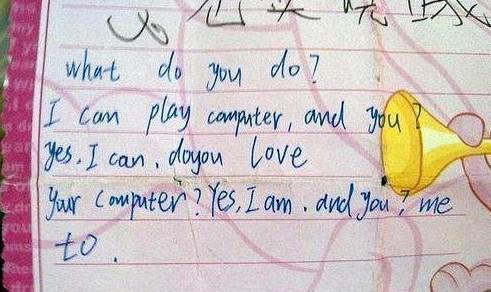 what do you do?
I can play computer, and you?
Yes, I can. doyou love
Your computer? Yes, I am. and you? me
to.